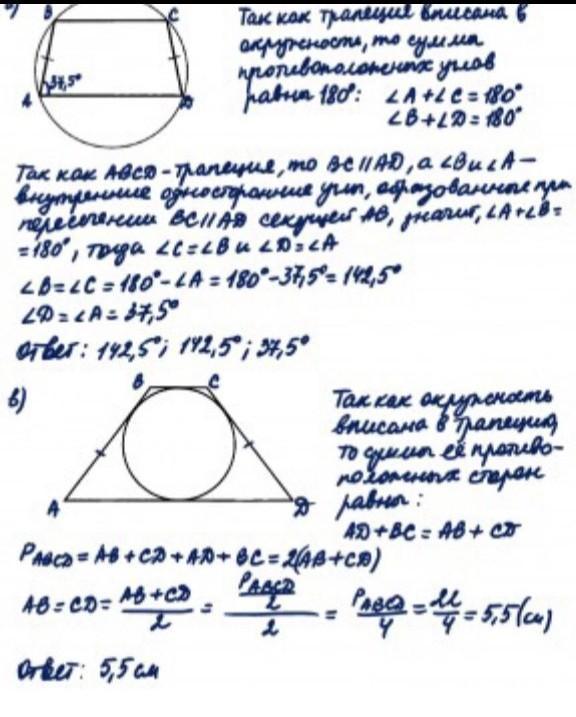 Так как трапеция вписана в
окружность, то сумма
противоположных углов
равна 180°: ∠A+∠C=180°
∠B+∠D=180°
B C
A 37,5° D
Так как ABCD-трапеция, то BC∥AD, а ∠B и ∠A—
внутренние односторонние углы, образованные при
пересечении BC∥AD секущей AB, значит, ∠A+∠B=
=180°, тогда ∠C=∠B и ∠D=∠A
∠B=∠C=180°-∠A=180°-37,5°=142,5°
∠D=∠A=37,5°
Ответ: 142,5°; 142,5°; 37,5°
в)
B C
A D
Так как окружность
вписана в трапецию,
то суммы её противо-
положных сторон
равны:
AD+BC=AB+CD
P_ABCD=AB+CD+AD+BC=2(AB+CD)
AB=CD=(AB+CD)/2=(P_ABCD/2)/2=P_ABCD/4=22/4=5,5(см)
Ответ: 5,5 см